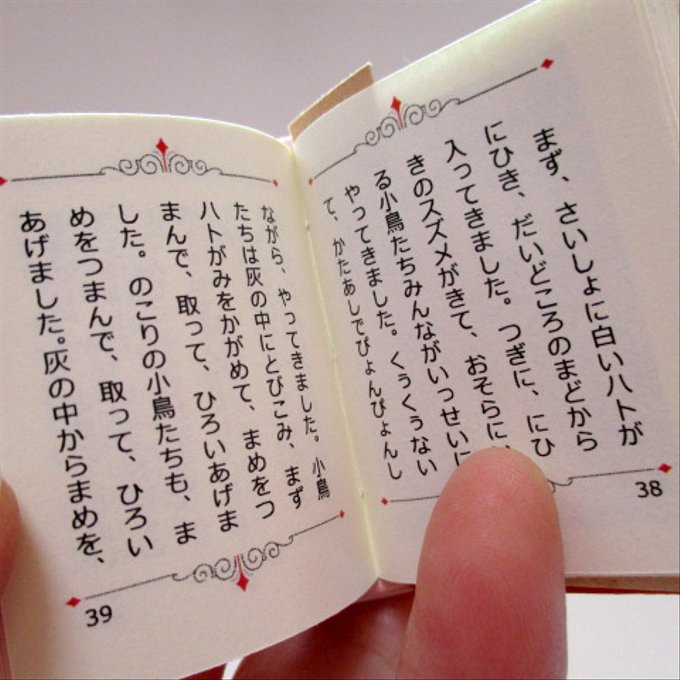 まず、さいしょに白いハトが
にひき、だいどころのまどから
入ってきました。つぎに、にひ
きのスズメがきて、おそらに、
る小鳥たちみんながいっせいに
やってきました。くぅくぅない
て、かたあしでぴょんぴょんし
38
ながら、やってきました。小鳥
たちは灰の中にとびこみ、まず
ハトがみをかがめて、まめをつ
まんで、取って、ひろいあげま
した。のこりの小鳥たちも、ま
めをつまんで、取って、ひろい
あげました。灰の中からまめを、
39